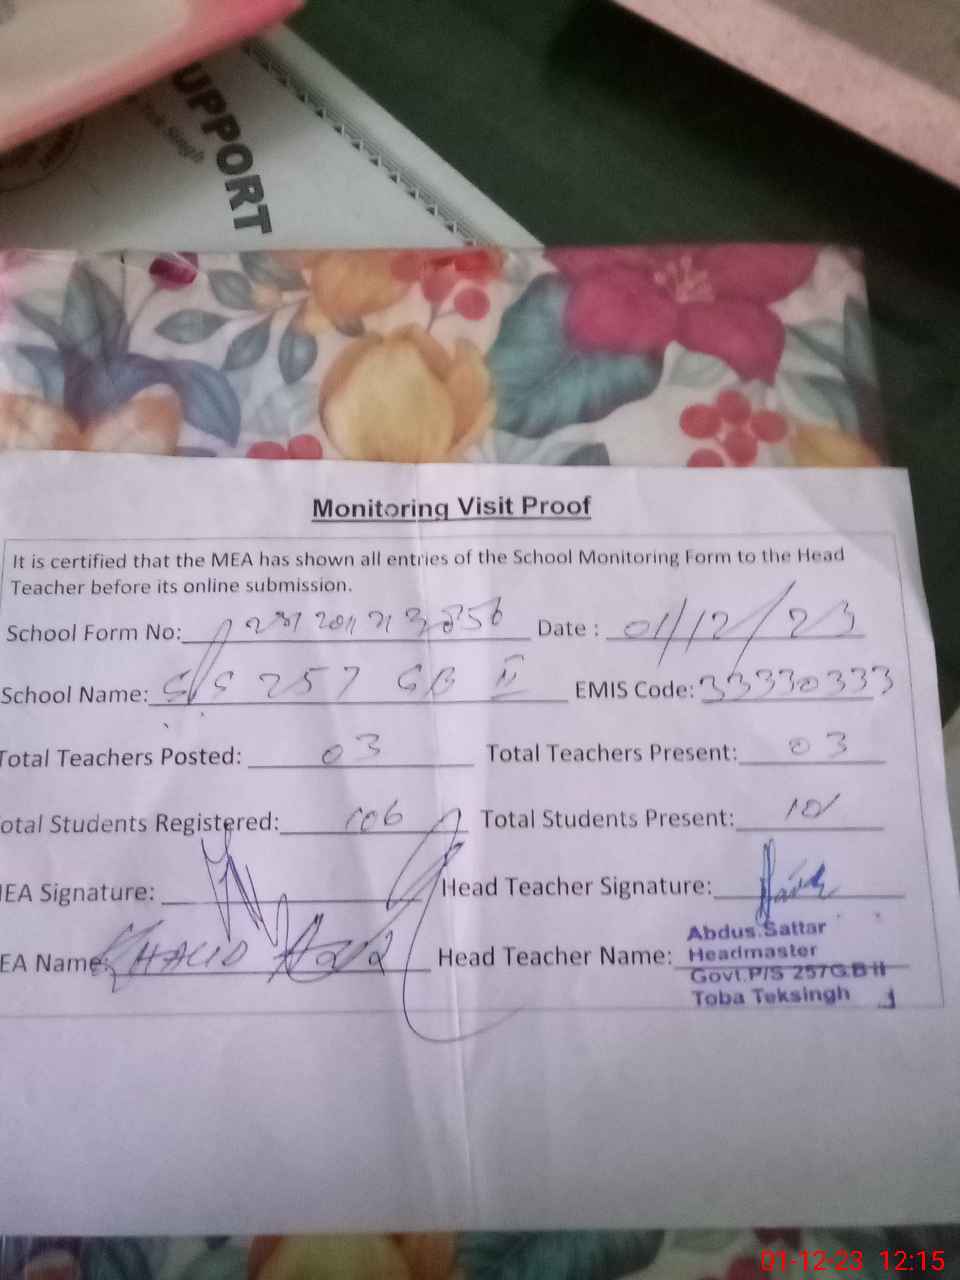 UPPORT
Monitoring Visit Proof
It is certified that the MEA has shown all entries of the School Monitoring Form to the Head
Teacher before its online submission.
School Form No: Date : 01/12/23
School Name: 257 GB II EMIS Code: 33330333
Total Teachers Posted: 03 Total Teachers Present: 03
otal Students Registered: 106 Total Students Present: 101
IEA Signature: Head Teacher Signature:
EA Name: KHALID Head Teacher Name:
Abdus.Sattar
Headmaster
Govt.P/S 257G.B II
Toba Teksingh
01-12-23 12:15